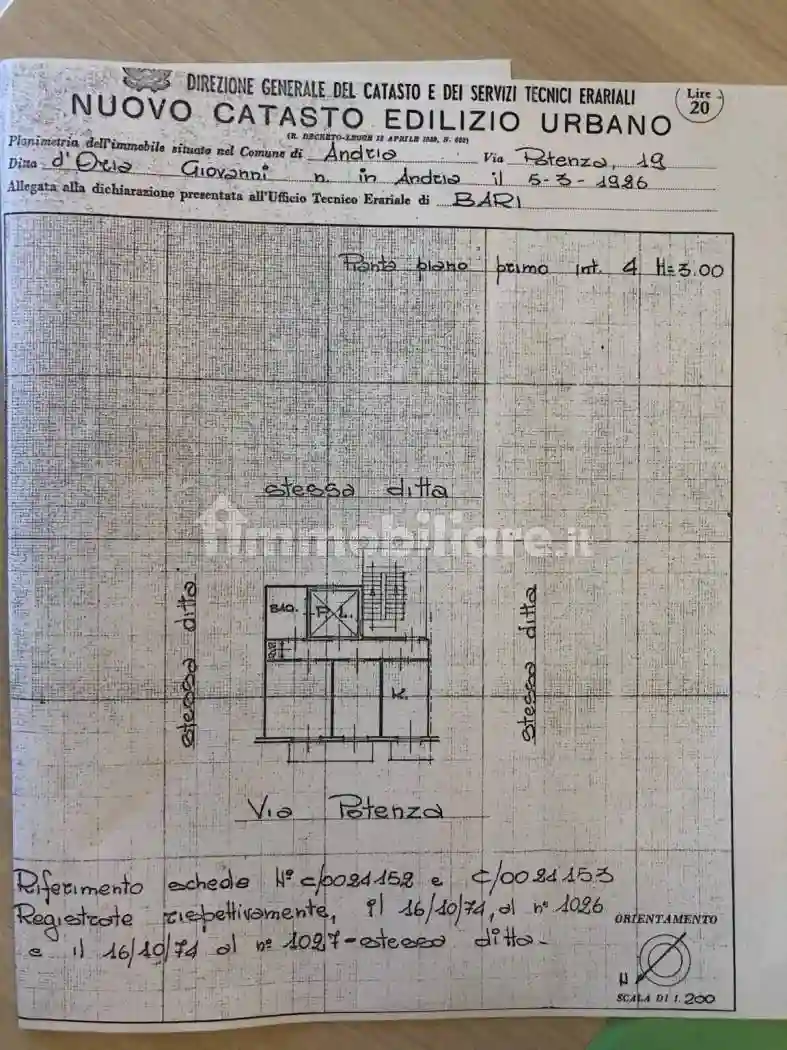 DIREZIONE GENERALE DEL CATASTO E DEI SERVIZI TECNICI ERARIALI
Lire
20
NUOVO CATASTO EDILIZIO URBANO
(R. DECRETO-LEGGE 13 APRILE 1939, N. 652)
Planimetria dell'immobile situato nel Comune di Andria Via Potenza, 19
Ditta d'Oria Giovanni n. in Andria il 5-3-1926
Allegata alla dichiarazione presentata all'Ufficio Tecnico Erariale di BARI
Pianta piano primo int. 4 H=3.00
stessa ditta
immobiliare.it
stessa ditta
stessa ditta
BAG.
P.L.
RIP.
K.
Via Potenza
Riferimento schede N° C/0021152 e C/0021153
Registrate rispettivamente, il 16/10/71, al n° 1026
e il 16/10/71 al n° 1027-stessa ditta-
ORIENTAMENTO
N
SCALA DI 1.200